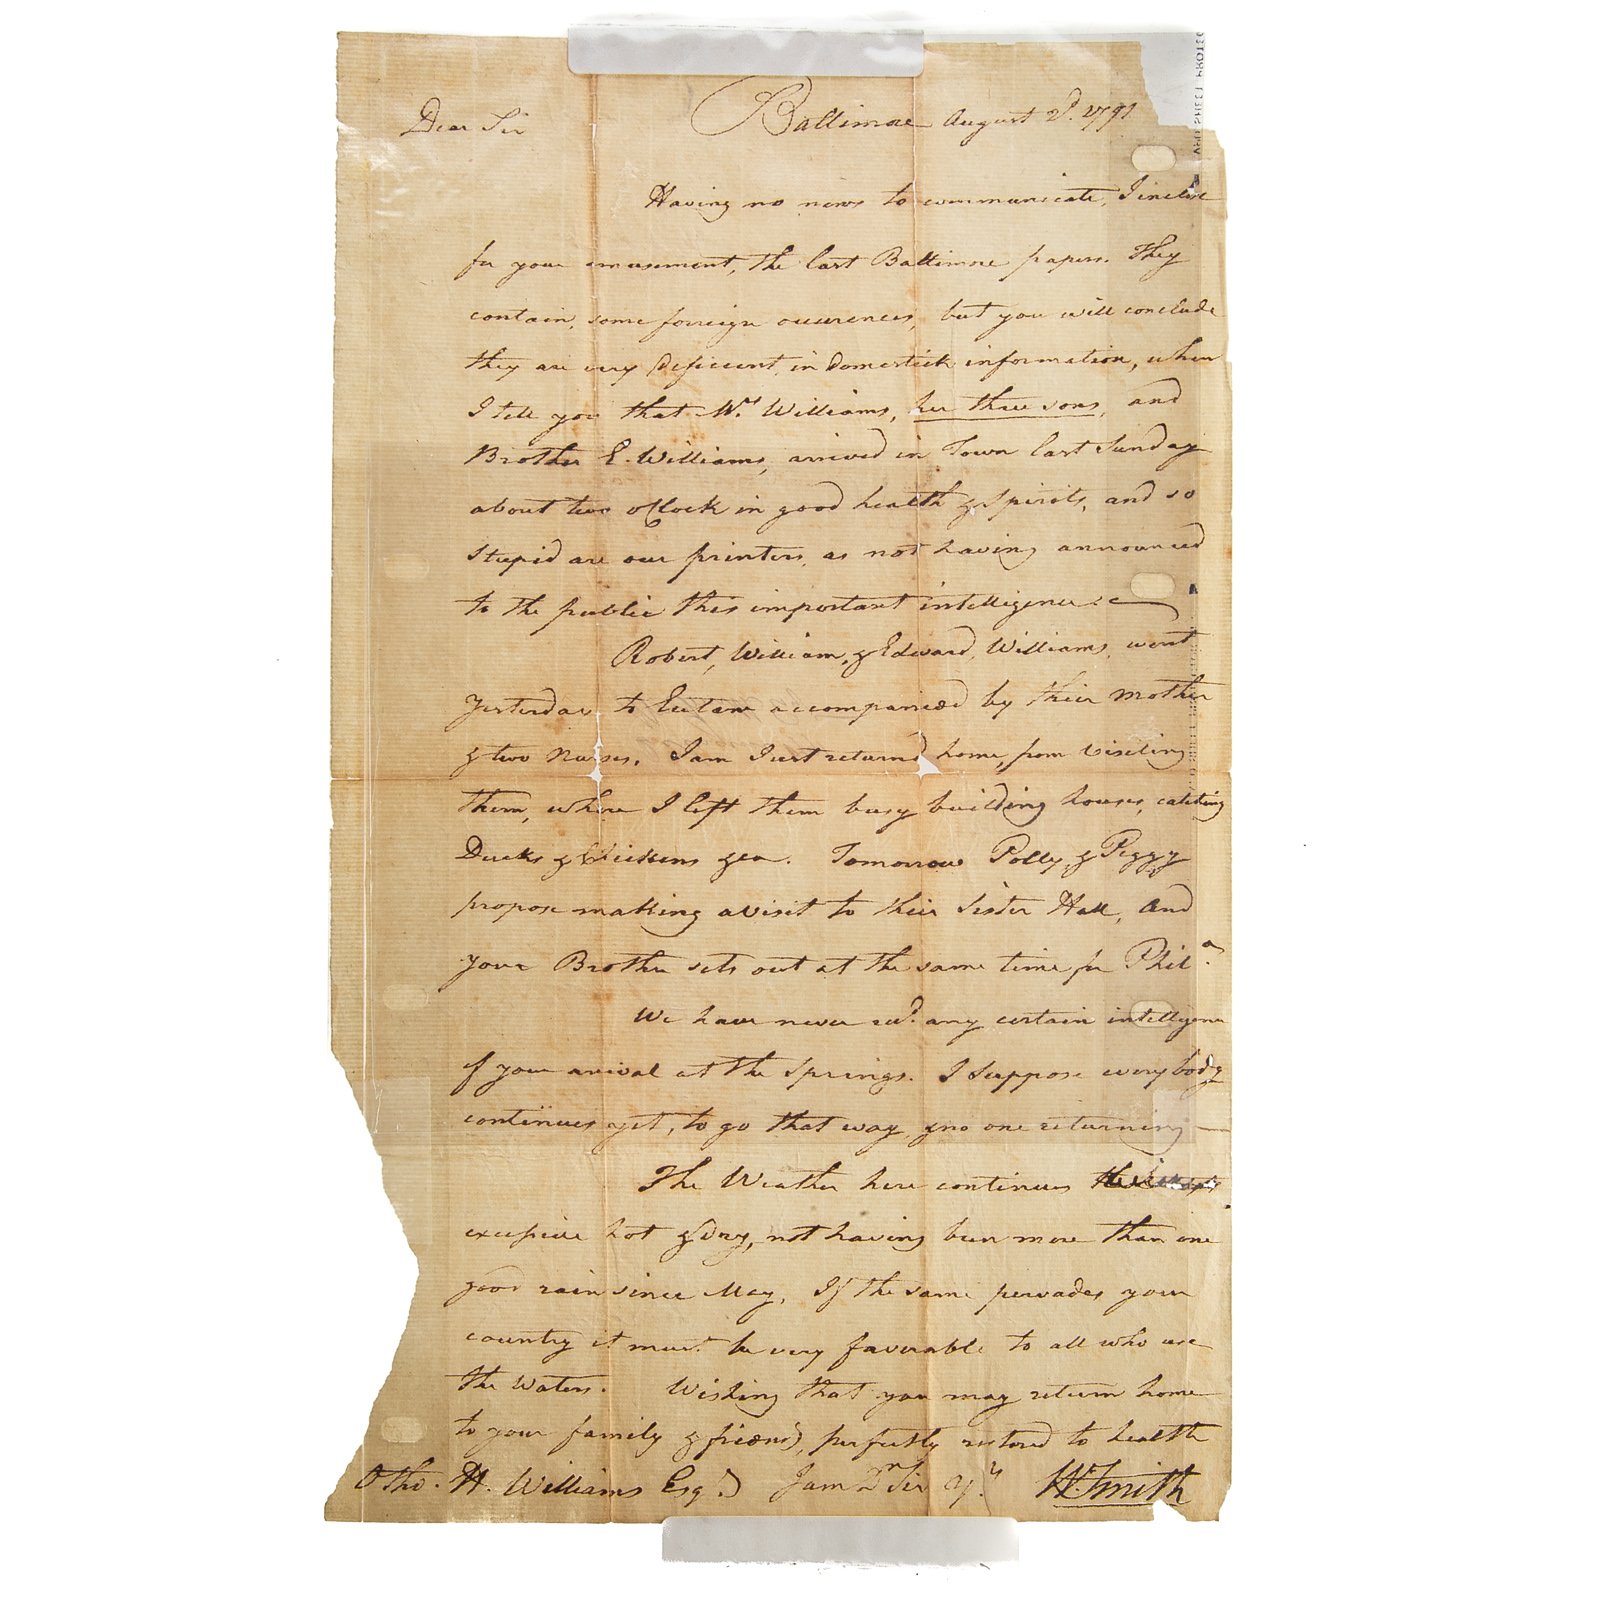 Baltimore August 2d. 1791
Dear Sir
Having no news to communicate, I inclose
for your amusement, the last Baltimore papers. They
contain, some forreign occurences, but you will conclude
they are very deficient in domestick information, when
I tell you that Mrs Williams, her three sons, and
Brother E. Williams, arrived in Town last Sunday
about two oClock in good health & Spirits, and so
Stupid are our printers, as not having announced
to the public this important intelligence.
Robert, William, & Edward, Williams, went
Yesterday to Eutaw accompanied by their Mother
& two Nurses. I am Just returnd home, from Visiting
them, where I left them busy building houses, catching
Ducks & Chickens &ca. Tomorrow Polly & Peggy
propose making a visit to their Sister Hall, and
your Brother sets out at the same time for Phila.
We have never recd. any certain intelligence
of your arrival at the Springs. I Suppose every body
continues yet, to go that way, & no one returning —
The Weather here continues
excessive hot & dry, not having been more than one
good rain since May, If the same pervades your
country it must be very favorable to all who use
the Waters. Wishing that you may return home
to your family & friends, perfectly restored to health
Otho. H. Williams Esqr. I am Dr Sir Yr. Wm Smith